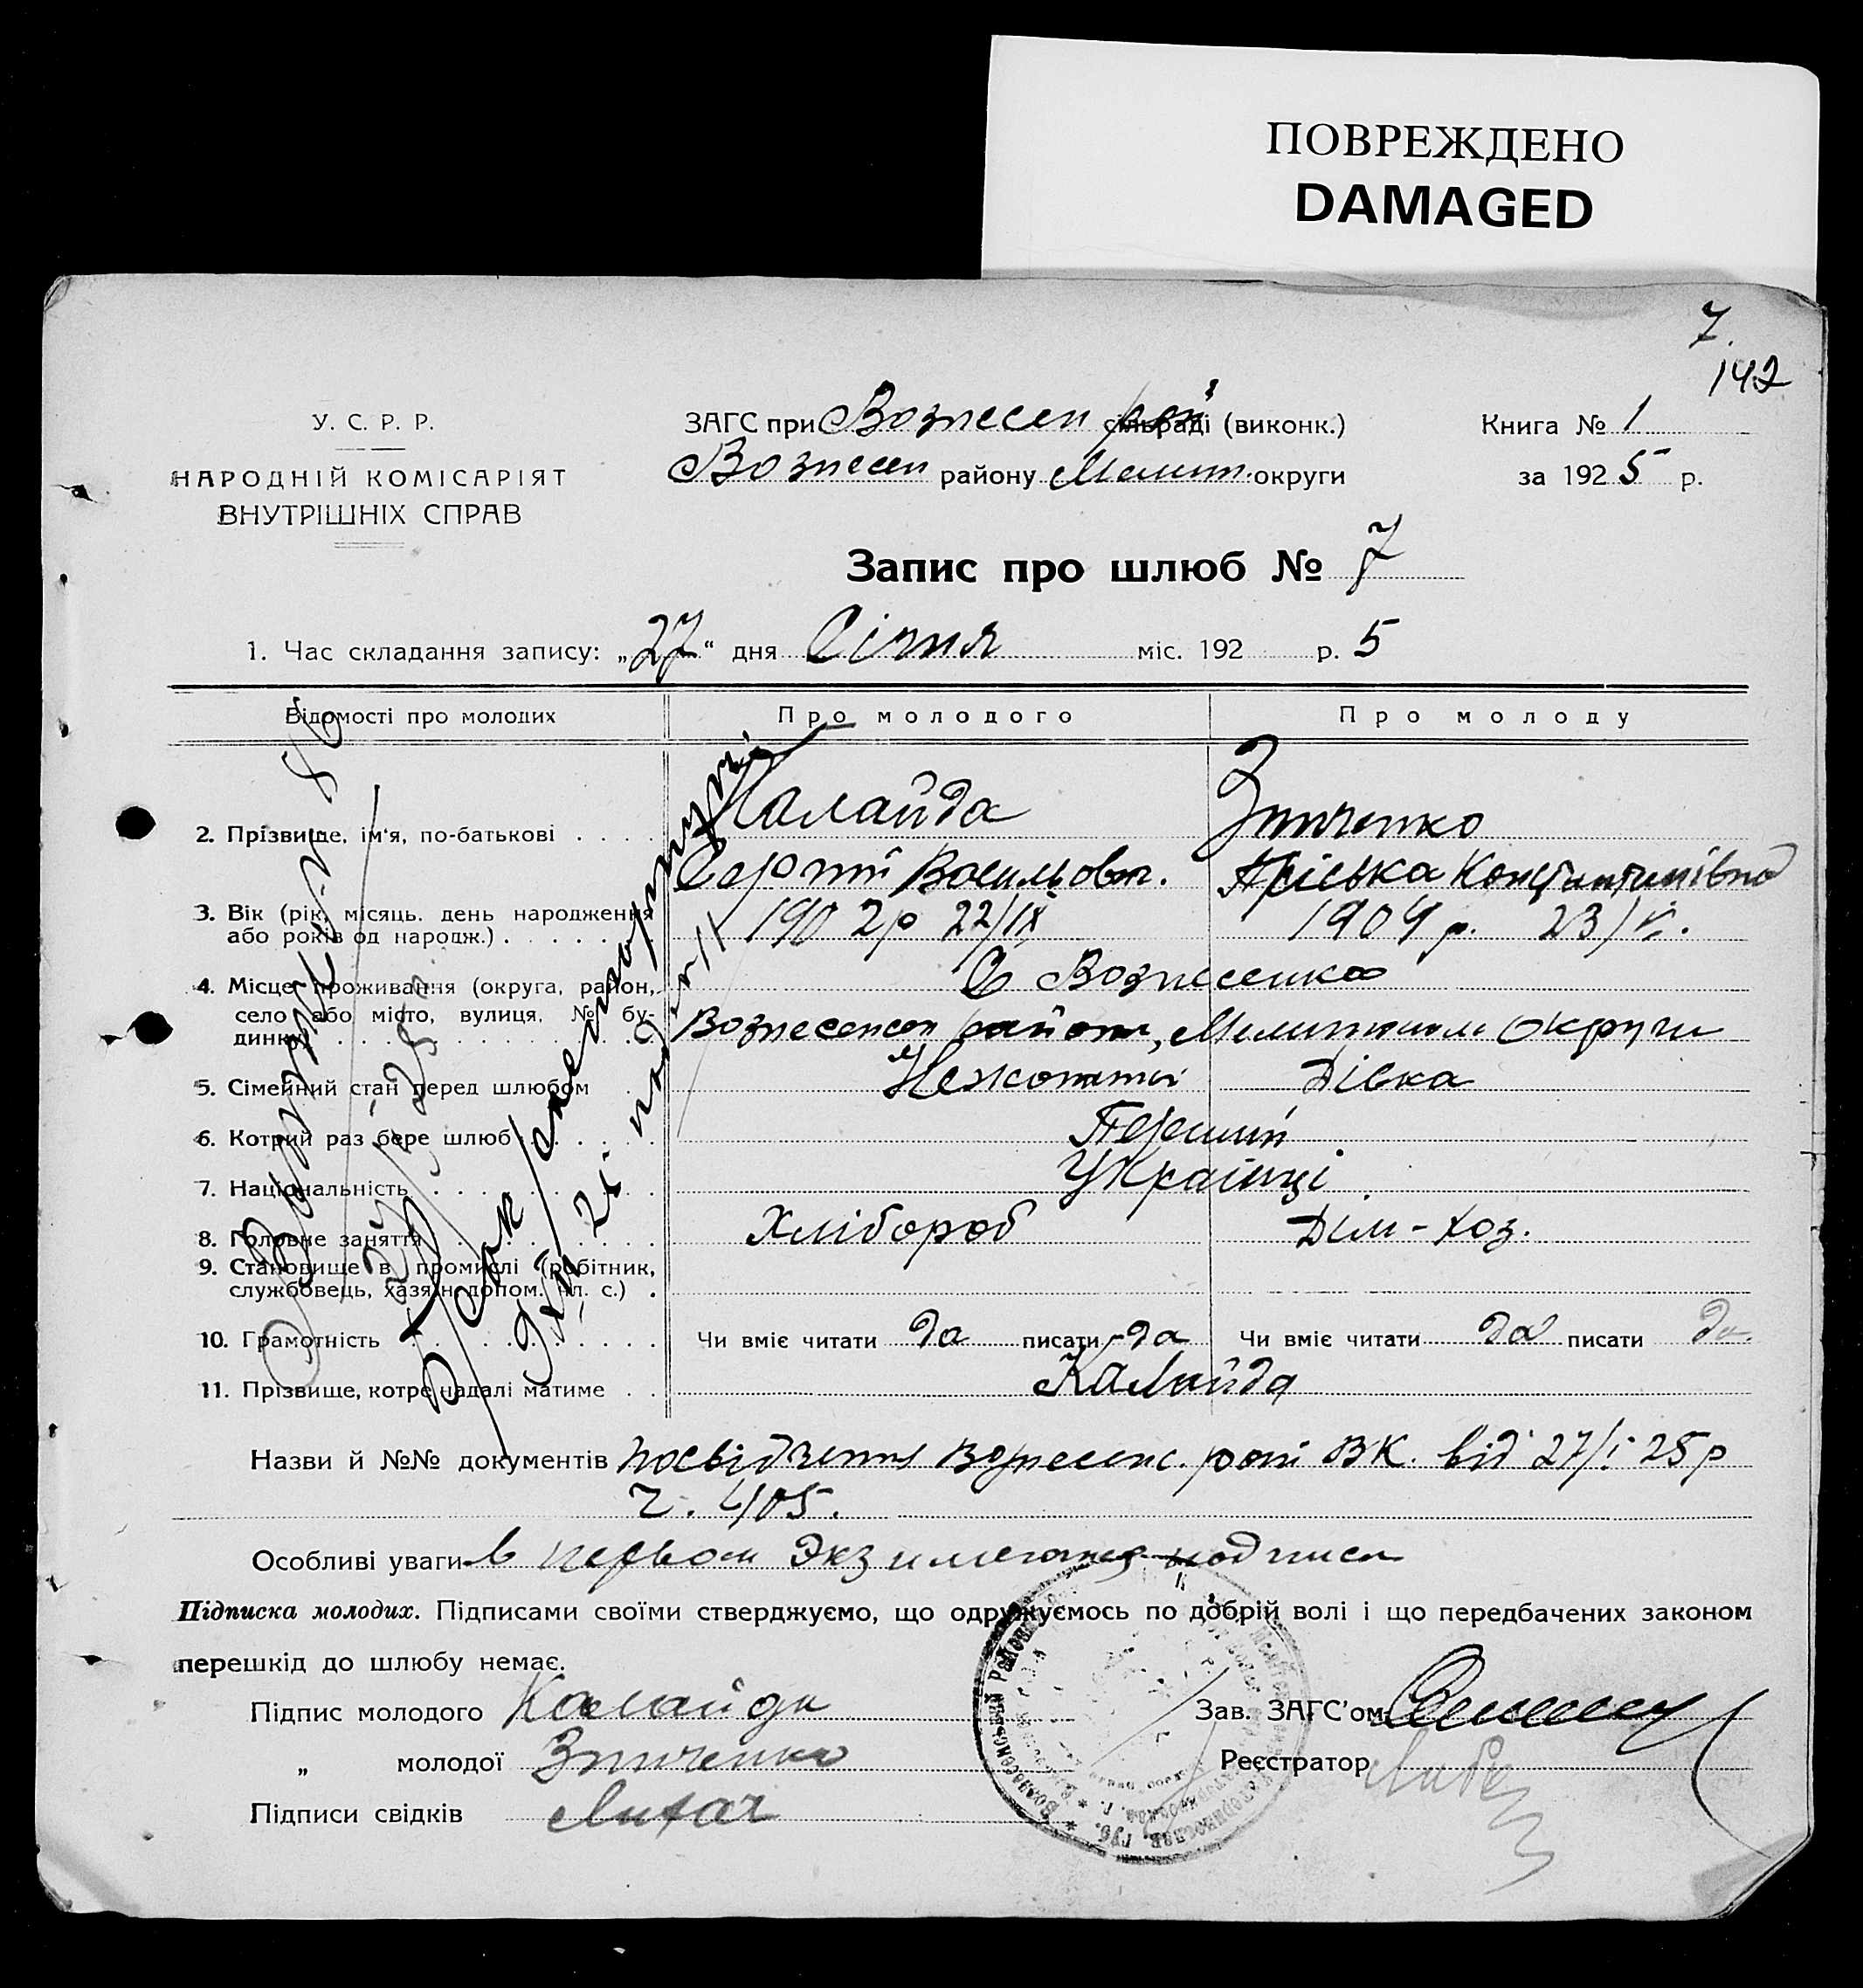 ПОВРЕЖДЕНО
DAMAGED
7.
142
У. С. Р. Р.
НАРОДНІЙ КОМІСАРІЯТ
ВНУТРІШНІХ СПРАВ
ЗАГС при Вознесен рай сільраді (виконк.)
Вознесен району Мелит. округи
Книга № 1
за 1925 р.
Запис про шлюб № 7
1. Час складання запису: „27“ дня Січня міс. 192 р. 5
Відомості про молодих
Про молодого
Про молоду
2. Прізвище, ім'я, по-батькові . . . .
Калайда
Зинченко
Сергій Васильов.
Пріська Константинівна
3. Вік (рік, місяць. день народження
або років од народж.) . . . . . .
1902р 22/IX
1904 р. 23/
4. Місце проживання (округа, район,
село або місто, вулиця, № бу-
динку)
С Вознесенка
Вознесенськ район, Мелитополь Округи
5. Сімейний стан перед шлюбом
Нежонатий
Дівка
6. Котрий раз бере шлюб . . . . . .
Перший
7. Національність . . . . . . . .
Українці
8. Головне заняття . . . . . . . .
Хлібороб
Дім-хоз.
9. Становище в промислі (робітник,
службовець, хазяїн, допом. чл. с.) .
10. Грамотність . . . . . . . . .
Чи вміє читати да писати да
Чи вміє читати да писати да
11. Прізвище, котре надалі матиме . .
Калайда
Назви й №№ документів посвідчення Вознесенс. рай ВК. від 27/I 25р
ч. 405.
Особливі уваги в первом Экз имеются подписи
Підписка молодих. Підписами своїми стверджуємо, що одружуємось по добрій волі і що передбачених законом
перешкід до шлюбу немає.
Підпис молодого Калайда
„ молодої Зинченко
Підписи свідків Лихач
Зав. ЗАГС'ом
Реєстратор